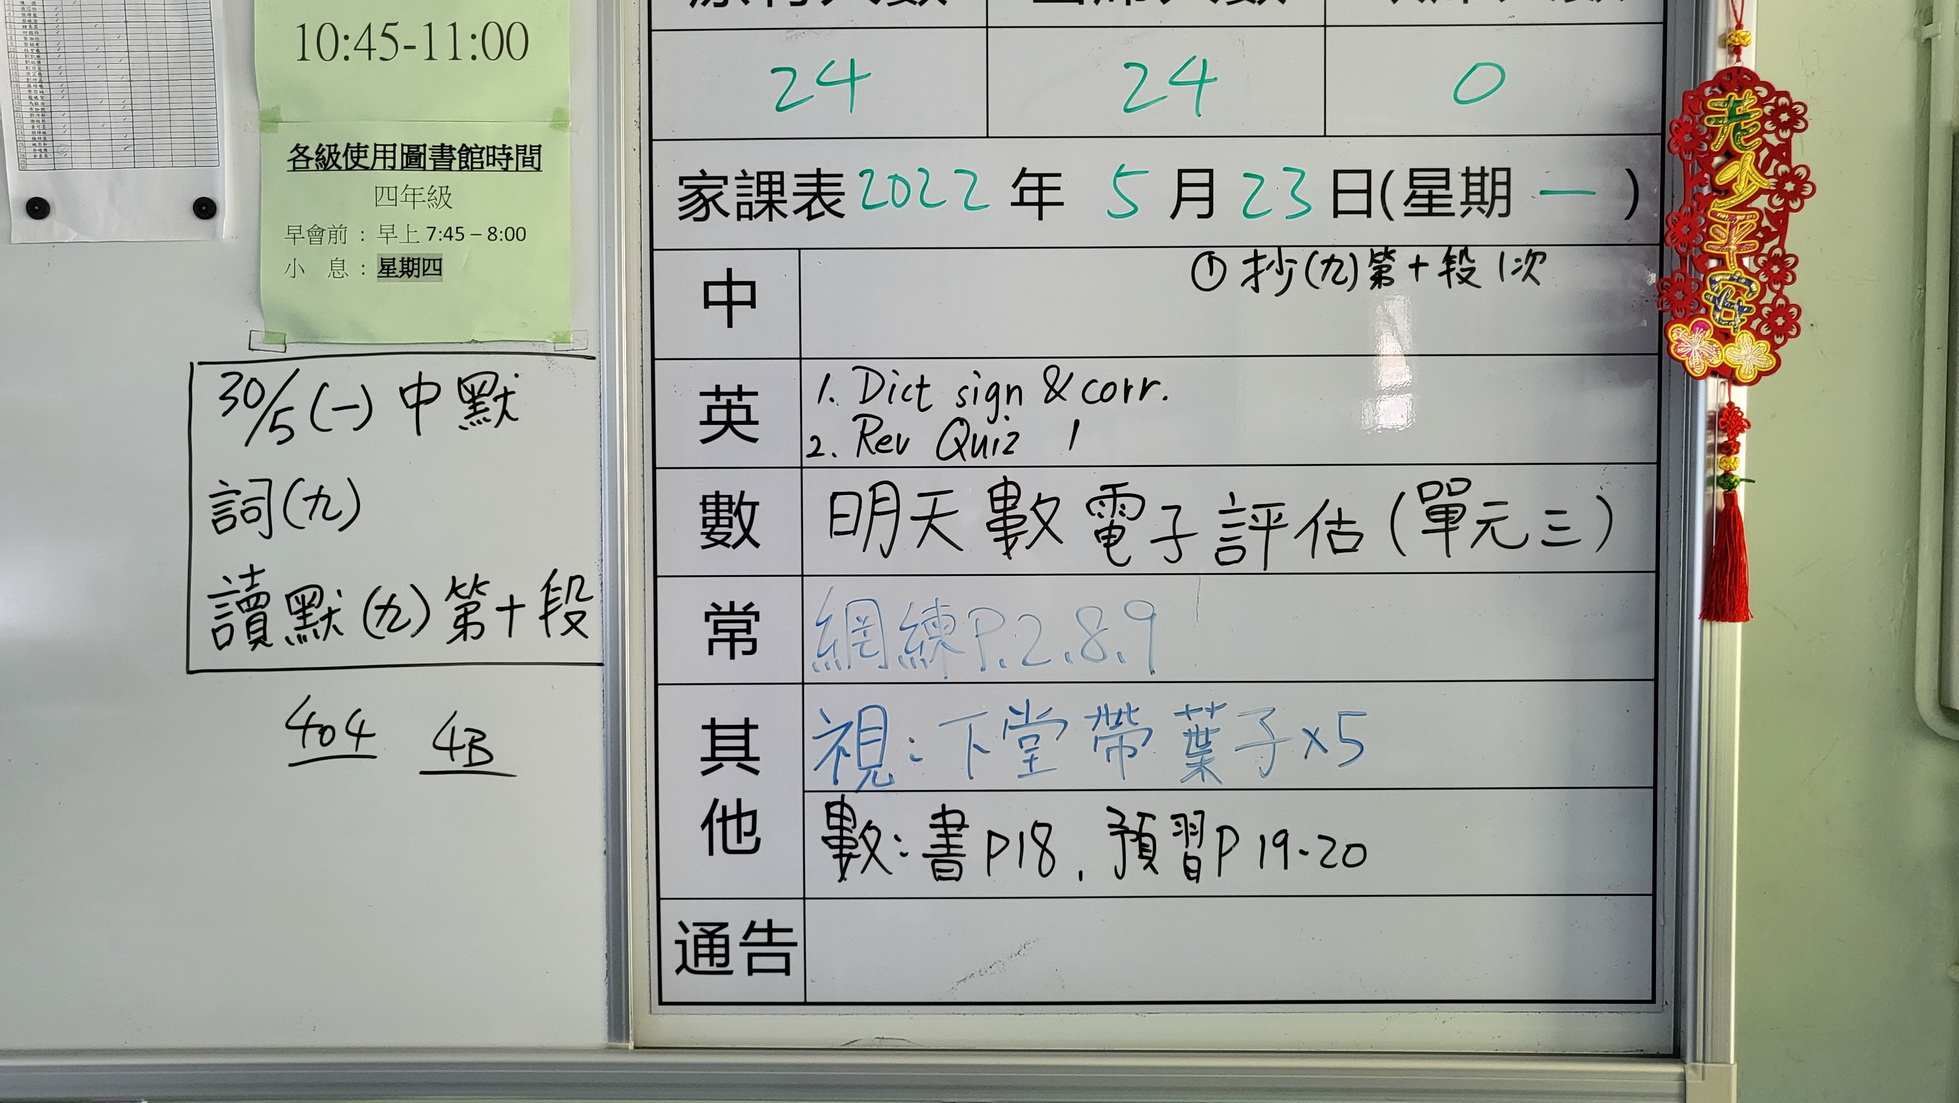 10:45-11:00
各級使用圖書館時間
四年級
早會前：早上 7:45 – 8:00
小 息：星期四
30/5(一) 中默
詞(九)
讀默(九)第十段
404 4B
24 24 0
家課表 2022 年 5 月 23 日(星期 一 )
中 ① 抄(九)第十段1次
英 1. Dict sign & corr.
2. Rev Quiz 1
數 明天數電子評估(單元三)
常 網練P.2.8.9
其他 視：下堂帶葉子x5
數：書P18, 預習P19-20
通告
老少平安